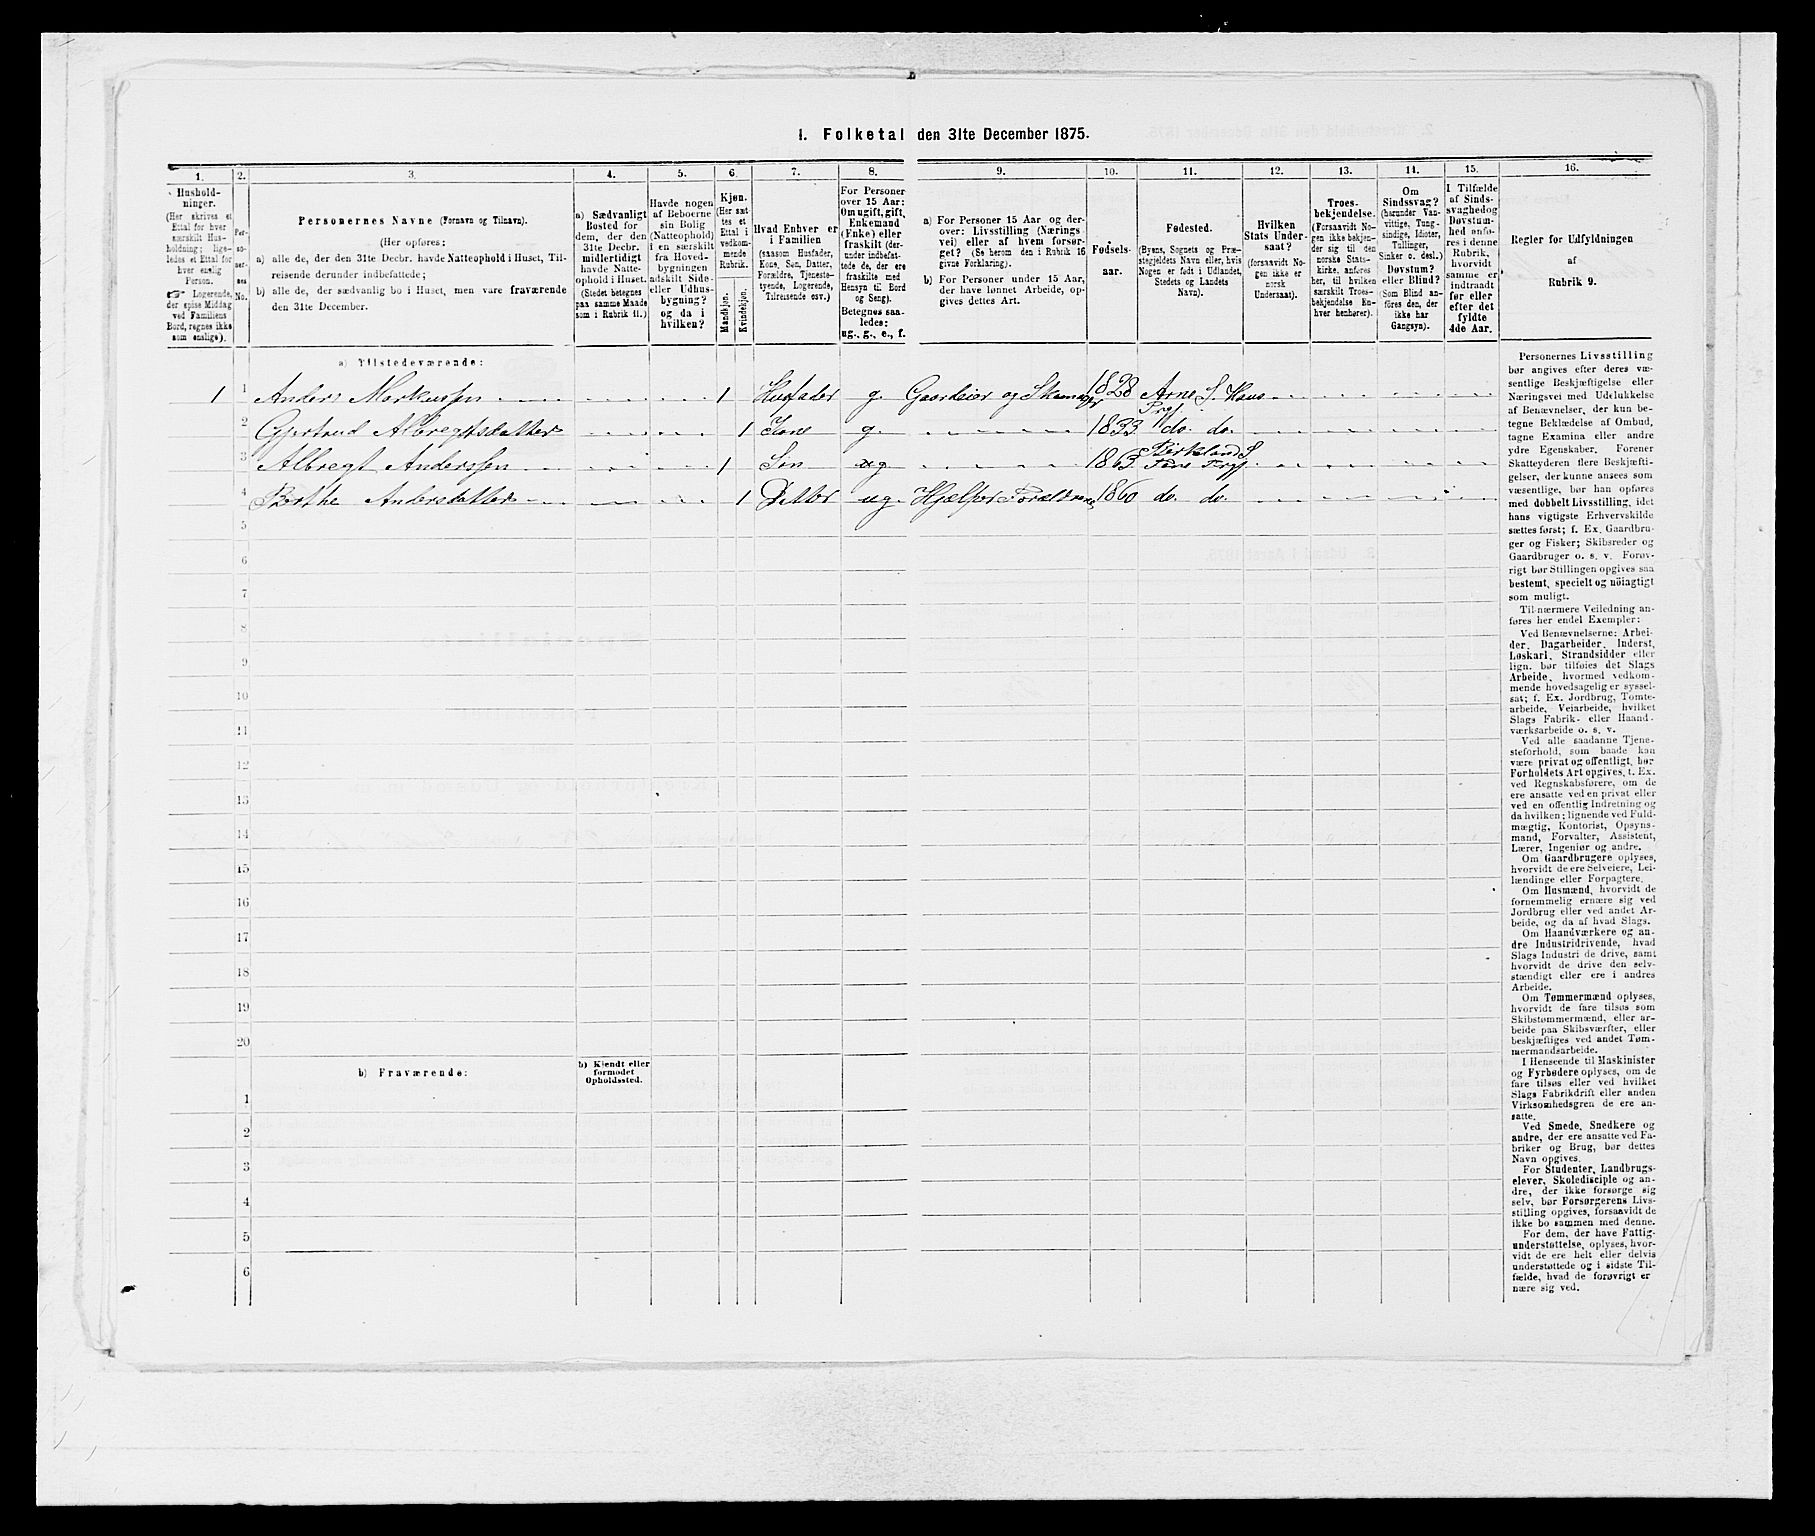 1. Folketal den 31te December 1875.
1. 2. 3. 4. 5. 6. 7. 8. 9. 10. 11. 12. 13. 14. 15. 16.
Hushold-
ninger.
(Her skrives et
Ettal for hver
særskilt Hus-
holdning; lige-
ledes et Ettal for
hver enslig
Person.
☞ Logerende,
der spise Middag
ved Familiens
Bord, regnes ikke
som enslige).
Per-
so-
ner-
nes
No.
Personernes Navne (Fornavn og Tilnavn).
(Her opføres;
a) alle de, der den 31te Decbr. havde Natteophold i Huset, Til-
reisende derunder indbefattede;
b) alle de, der sædvanlig bo i Huset, men vare fraværende
den 31te December.
a) Sædvanligt
Bosted for
dem, der den
31te Decbr.
midlertidigt
havde Natte-
ophold i Huset.
(Stedet betegnes
paa samme Maade
som i Rubrik 11.)
Havde nogen
af Beboerne
sin Bolig
(Natteophold)
i en særskilt
fra Hoved-
bygningen
adskilt Side-
eller Udhus-
bygning?
og da i
hvilken?
Kjøn.
(Her sæt-
tes et
Ettal i
vedkom-
mende
Rubrik.
Mandkjøn.
Kvindekjøn.
Hvad Enhver er
i Familien
(saasom Husfader,
Kone, Søn, Datter,
Forældre, Tjeneste-
tyende, Logerende,
Tilreisende osv.)
For Personer
over 15 Aar:
Om ugift, gift,
Enkemand
(Enke) eller
fraskilt (der-
under indbefat-
tede de, der ere
fraskilte med
Hensyn til Bord
og Seng).
Betegnes saa-
ledes:
ug., g., e., f.
a) For Personer 15 Aar og der-
over: Livsstilling (Nærings-
vei) eller af hvem forsør-
get? (Se herom den i Rubrik 16
givne Forklaring).
b) For Personer under 15 Aar,
der have lønnet Arbeide, op-
gives dettes Art.
Fødsels-
aar.
Fødested.
(Byens, Sognets og Præ-
stegjeldets Navn eller, hvis
Nogen er født i Udlandet,
Stedets og Landets
Navn).
Hvilken
Stats Under-
saat?
(forsaavidt No-
gen ikke er
norsk
Undersaat).
Troes-
bekjendelse.
(Forsaavidt No-
gen ikke bekjen-
der sig til den
norske Stats-
kirke, anføres
her, til hvilken
særskilt Troes-
bekjendelse En-
hver henhører).
Om
Sindssvag?
(herunder Van-
vittige, Tung-
sindige, Idioter,
Tullinger,
Sinker o. desl.)
Døvstum?
eller Blind?
(Som Blind an-
føres den, der
ikke har
Gangsyn).
I Tilfælde
af Sinds-
svaghed og
Døvstum-
hed anfø-
res i denne
Rubrik,
hvorvidt
samme er
indtraadt
før eller
efter det
fyldte
4de Aar.
Regler for Udfyldningen
af
Rubrik 9.
a) Tilstedeværende:
1 1 Anders Markussen 1 Husfader g. Gaardeier og 1828 Arne S. Haus
Prgj
2 Gjertrud Albregtsdatter 1 Kone g. 1833 do. do.
Birkeland S
3 Albregt Anderssen 1 Søn ug 1863 Fane Prgj
4 Berthe Andersdatter 1 Datter ug. Hjælper Forældrene 1860 do. do.
5
6
7
8
9
10
11
12
13
14
15
16
17
18
19
20
b) Fraværende:
b) Kjendt eller
formodet
Opholdssted.
1
2
3
4
5
6
Personernes Livsstilling
bør angives efter deres væ-
sentlige Beskjæftigelse eller
Næringsvei med Udelukkelse
af Benævnelser, der kun be-
tegne Beklædelse af Ombud,
tagne Examina eller andre
ydre Egenskaber. Forener
Skatteyderen flere Beskjæfti-
gelser, der kunne ansees som
væsentlige, bør han opføres
med dobbelt Livsstilling, idet
hans vigtigste Erhvervskilde
sættes først; f. Ex. Gaardbru-
ger og Fisker; Skibsreder og
Gaardbruger o. s. v. Forøv-
rigt bør Stillingen opgives saa
bestemt, specielt og nöiagtigt
som muligt.
Til nærmere Veiledning an-
føres her endel Exempler:
Ved Benævnelserne: Arbei-
der, Dagarbeider, Inderst,
Løskarl, Strandsidder eller
lign. bør tilføies det Slags
Arbeide, hvormed vedkom-
mende hovedsagelig er syssel-
sat; f. Ex. Jordbrug, Tomte-
arbeide, Veiarbeide, hvilket
Slags Fabrik- eller Haand-
værksarbeide o. s. v.
Ved alle saadanne Tjene-
steforhold, som baade kan
være privat og offentligt, bør
Forholdets Art opgives, t. Ex.
ved Regnskabsførere, om de
ere ansatte ved en privat eller
ved en offentlig Indretning og
da hvilken; lignende ved Fuld-
mægtig, Kontorist, Opsyns-
mand, Forvalter, Assistent,
Lærer, Ingeniør og andre.
Om Gaardbrugere oplyses,
hvorvidt de ere Selveiere, Lei-
lændinge eller Forpagtere.
Om Husmænd, hvorvidt de
fornemmelig ernære sig ved
Jordbrug eller ved andet Ar-
beide, og da af hvad Slags.
Om Haandværkere og an-
dre Industridrivende, hvad
Slags Industri de drive, samt
hvorvidt de drive den selv-
stændigt eller ere i andres
Arbeide.
Om Tømmermænd oplyses,
hvorvidt de fare tilsøs som
Skibstømmermænd, eller ar-
beide paa Skibsværfter, eller
beskjæftiges ved andet Tøm-
mermandsarbeide.
I Henseende til Maskinister
og Fyrbødere oplyses, om de
fare tilsøs eller ved hvilket
Slags Fabrikdrift eller anden
Virksomhedsgren de ere an-
satte.
Ved Smede, Snedkere og
andre, der ere ansatte ved Fa-
briker og Brug, bør dettes
Navn opgives.
For Studenter, Landbrugs-
elever, Skoledisciple og an-
dre, der ikke forsørge sig
selv, bør Forsørgerens Livs-
stilling opgives, forsaavidt de
ikke bo sammen med denne.
For dem, der have Fattig-
understøttelse, oplyses, hvor-
vidt de ere helt eller delvis
understøttede og i sidste Til-
fælde, hvad de forøvrigt er
nære sig ved.